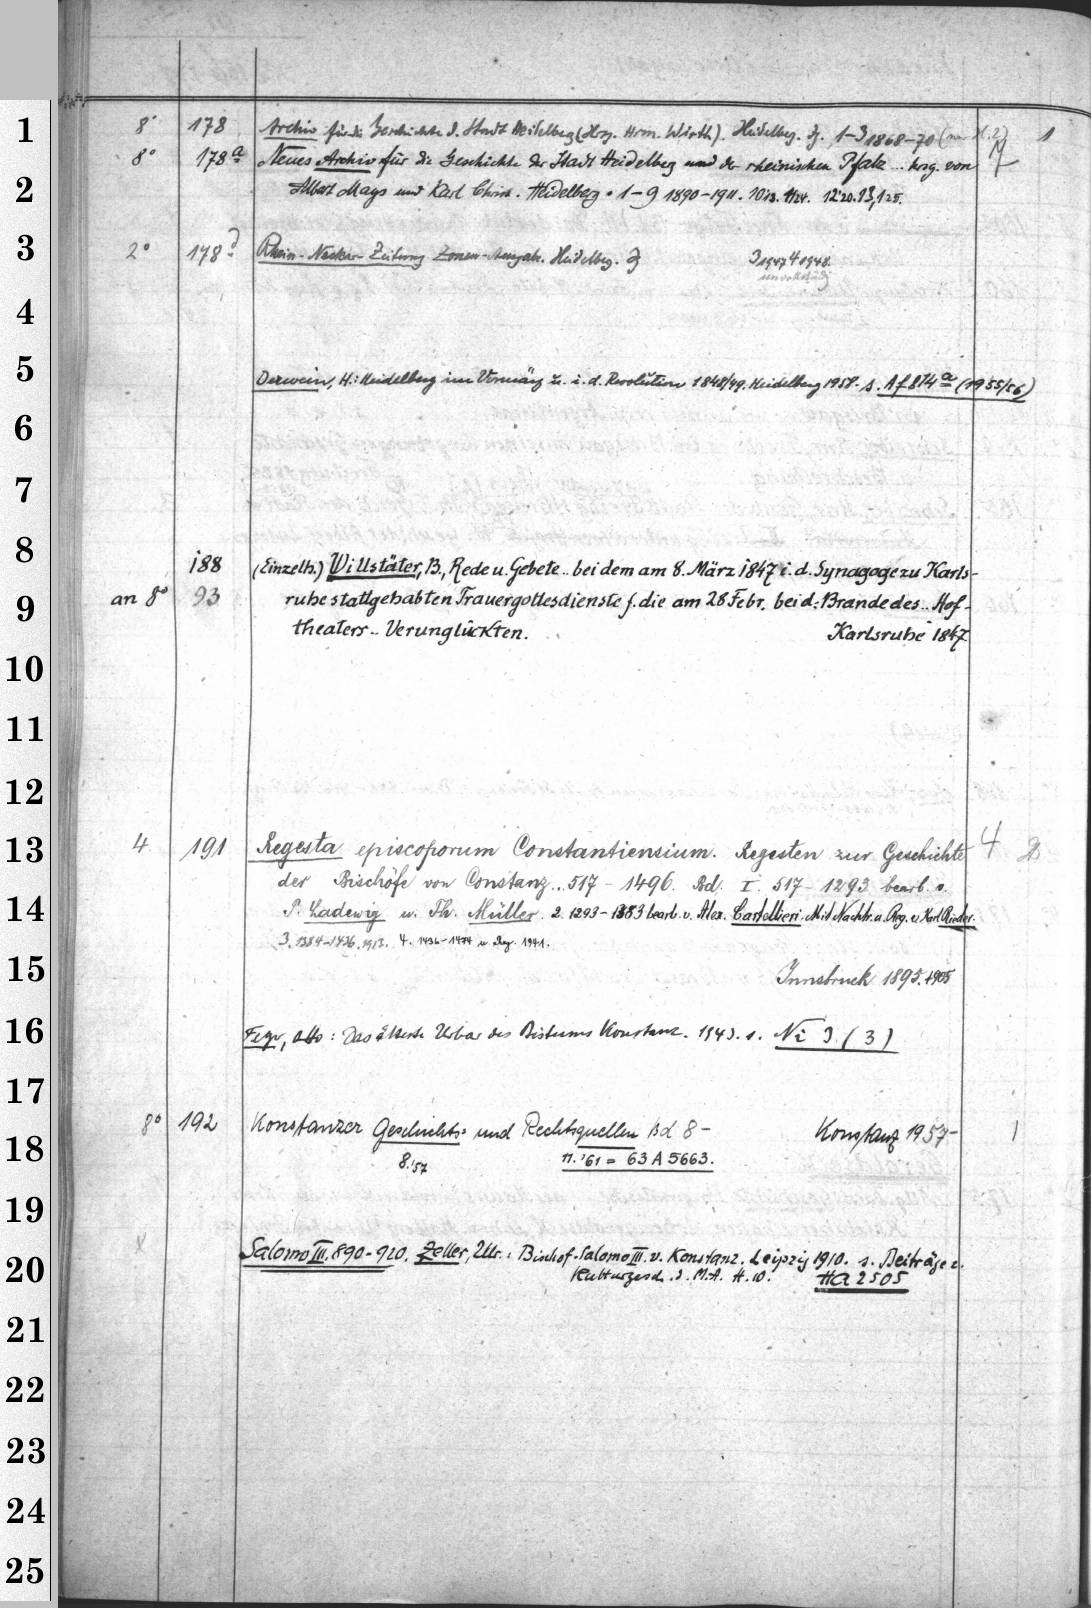 1
8° 178 Archiv für die Geschichte d. Stadt Heidelberg (Hrg. Herm. Wirth). Heidelbg. Jg. 1-3 1868-70 1
8° 178a Neues Archiv für die Geschichte der Stadt Heidelberg und der rheinischen Pfalz .. hrsg. von
2
Albert Mays und Karl Christ. Heidelberg. 1-9 1890-1911. 12'20. 13,1 25.
3
2° 178 Rhein-Neckar-Zeitung Zonen-Ausgabe. Heidelbg. 3 1947 4 1948.
unvollständig
4
5
Derwein, H.: Heidelberg im Vormärz u. i. d. Revolution 1848/49. Heidelberg 1958. s. Af 814a (1955/56)
6
7
8
188 (Einzelh.) Willstäter, B., Rede u. Gebete .. bei dem am 8. März 1847 i. d. Synagoge zu Karls-
9
an 8° 93 ruhe stattgehabten Trauergottesdienste f. die am 28 Febr. bei d. Brande des .. Hof-
theaters .. Verunglückten. Karlsruhe 1847
10
11
12
13
4 191 Regesta episcoporum Constantiensium. Regesten zur Geschichte 4
der Bischöfe von Constanz .. 517-1496. Bd. I. 517-1293 bearb. v.
14
P. Ladewig u. Th. Müller. 2. 1293-1383 bearb. v. Alex. Cartellieri. Mit Nachtr. u. Reg. v. Karl Rieder.
3. 1384-1436. 1913. 4. 1436-1474 u. Reg. 1941.
15
Innsbruck 1895. 1905
16
Feger, Otto: Das älteste Urbar des Bistums Konstanz. 1943. s. Ni 3 (3)
17
8° 192 Konstanzer Geschichts- und Rechtsquellen Bd 8- Konstanz 1957- 1
18
8.'57 11.'61 = 63 A 5663.
19
20
Salomo III. 890-920. Zeller, Ulr.: Bischof Salomo III. v. Konstanz. Leipzig 1910. s. Beiträge z.
Kulturgesch. d. M.A. H. 10. Ha 2505
21
22
23
24
25